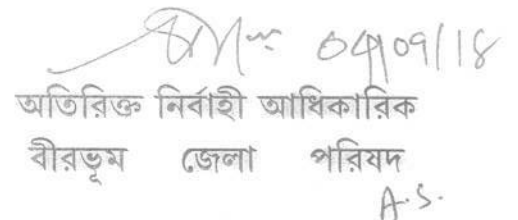 04/09/18
অতিরিক্ত নির্বাহী আধিকারিক
বীরভূম জেলা পরিষদ
A.S.